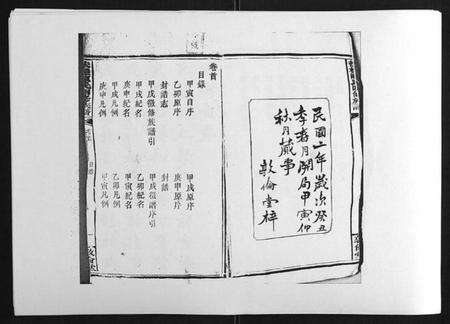 民國二年歲次癸丑
季春月開局甲寅仲
秋月蕆事
敦倫堂梓
卷首
目錄
甲寅自序
甲戌原序
乙卯原序
庚申原序
封誥志
封誥
甲戌徵修族譜引
甲戌徵譜序引
甲戌紀名
乙卯紀名
庚申紀名
甲寅紀名
甲戌凡例
乙卯凡例
庚申凡例
甲寅凡例